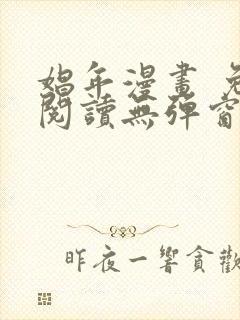 娼年漫畫 免
閱讀無彈窗
昨夜一響貪歡